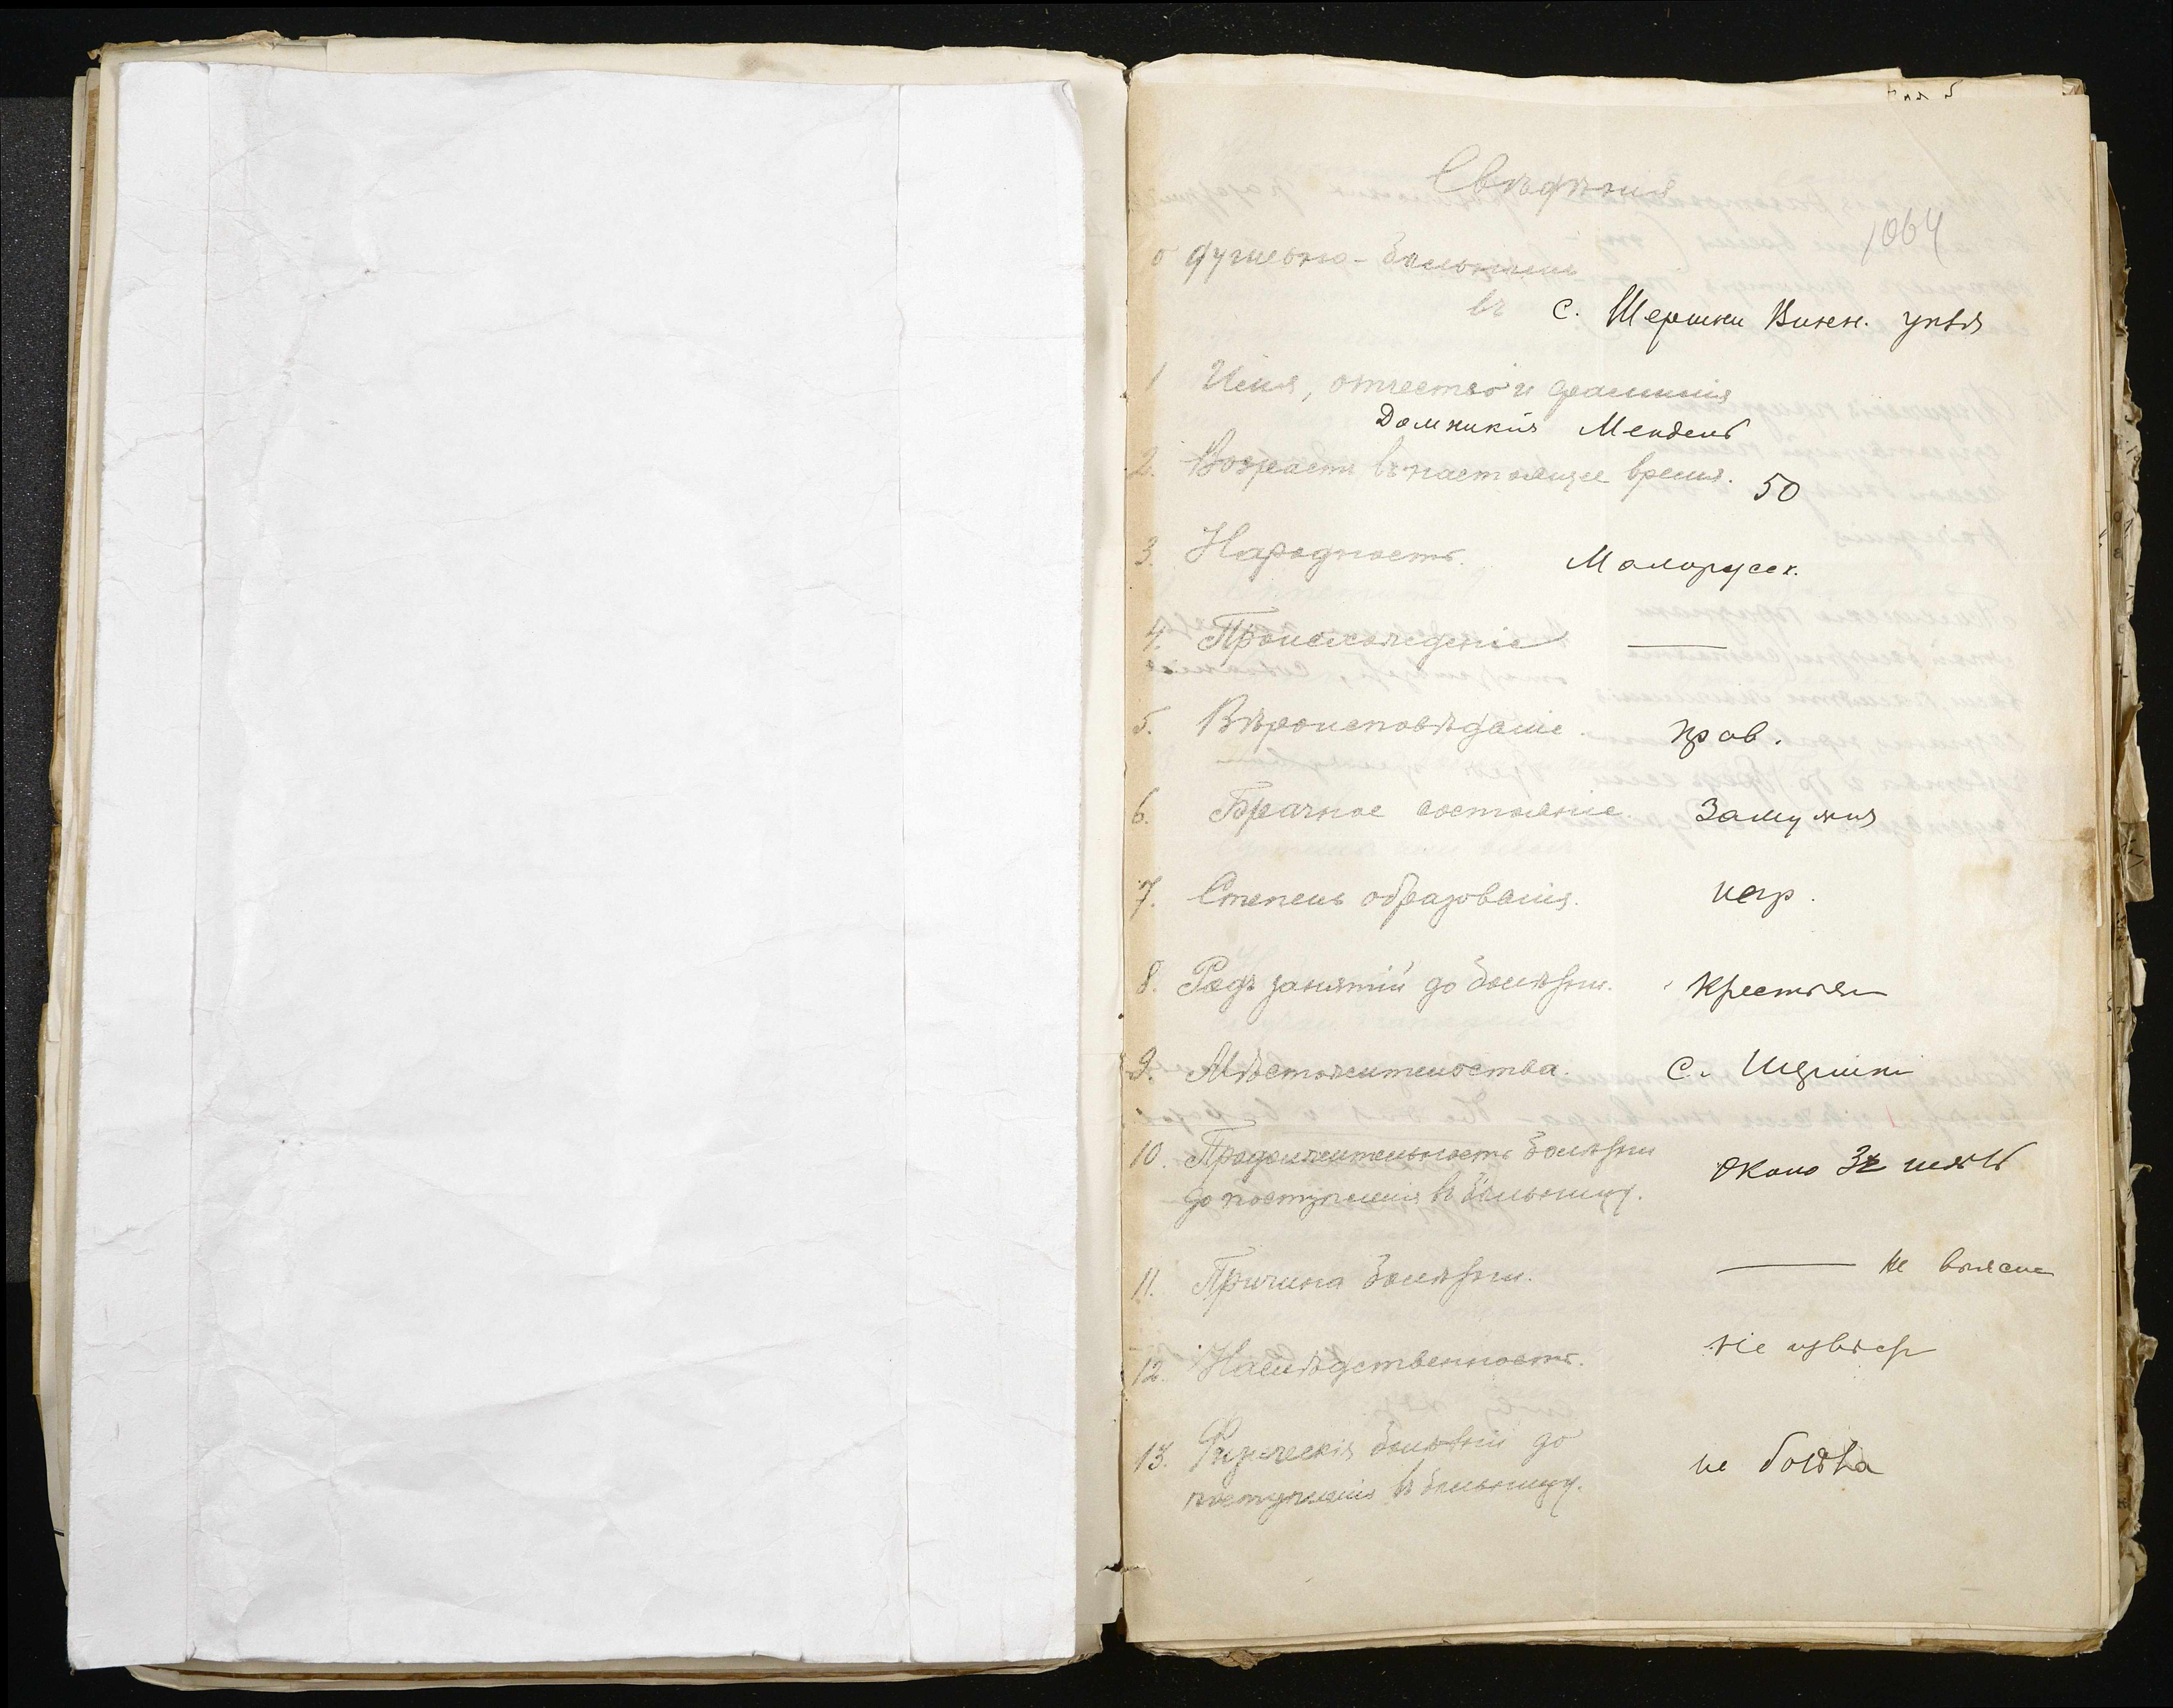 Свѣдѣнія
1064
о душевно-больномъ
въ с. Шершни Винн. уѣзд
1 Имя, отчество и фамилія
Домникія Мендель
2. Возрастъ въ настоящее время. 50
3. Народность. Малорусск.
4. Происхожденіе —
5. Вѣроисповѣданіе. прав.
6. Брачное состояніе. Замужня
7. Степень образованія. негр.
8. Родъ занятій до болѣзни. Крестьян
9. Мѣстожительства. С. Шершни
10. Продолжительность болѣзни около 3х лѣтъ
до поступленія въ больницу.
11. Причина болѣзни. — не выясне
12. Наслѣдственность. не извѣст
13. Физическія болѣзни до не болѣла
поступленія въ больницу.